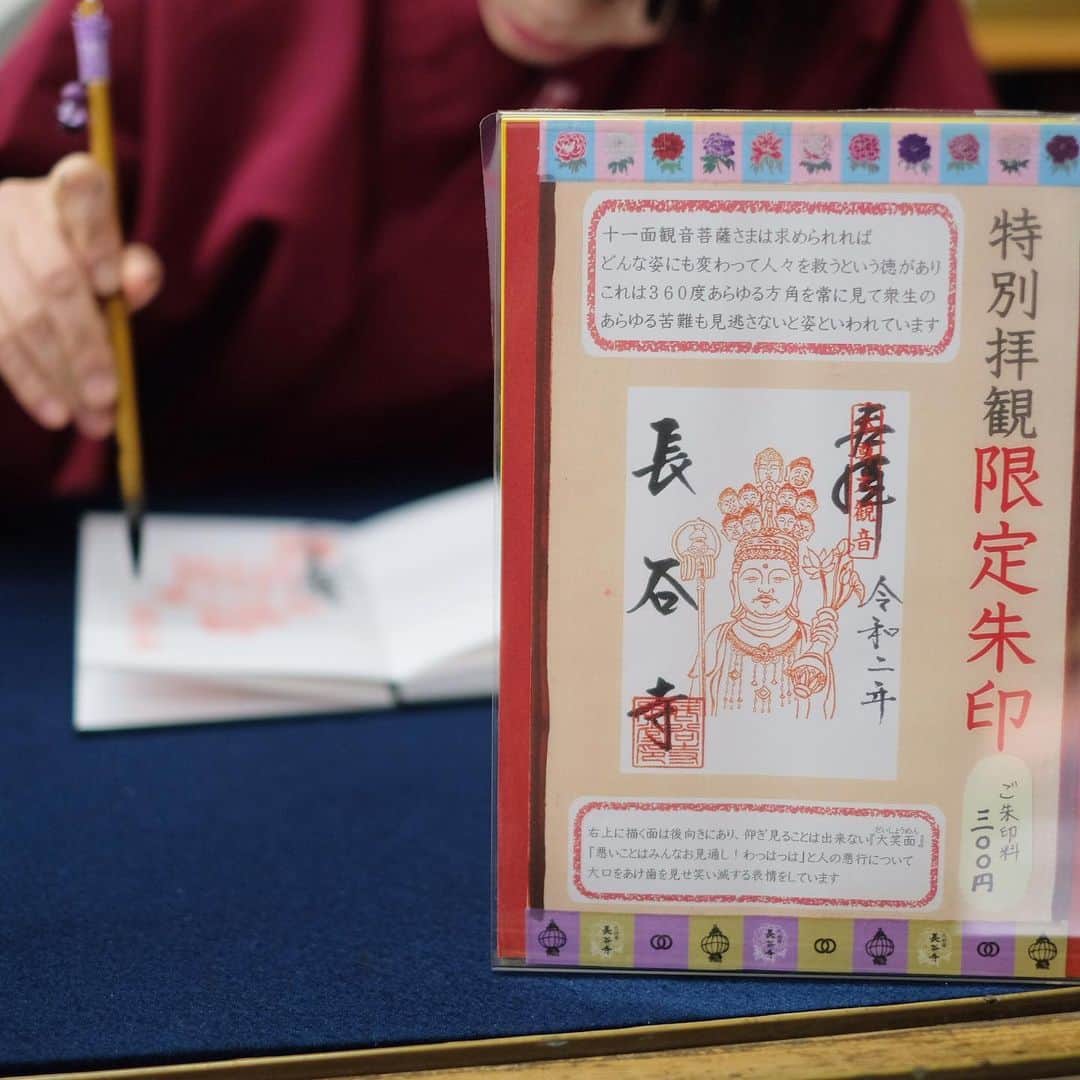 特別拝観限定朱印
ご朱印料
三〇〇円
十一面観音菩薩さまは求められれば
どんな姿にも変わって人々を救うという徳があり
これは360度あらゆる方角を常に見て衆生の
あらゆる苦難も見逃さないと姿といわれています
奉拝
令和二年
長谷寺
だいしょうめん
右上に描く面は後向きにあり、仰ぎ見ることは出来ない『大笑面』
「悪いことはみんなお見通し!わっはっは」と人の悪行について
大口をあけ歯を見せ笑い滅する表情をしています
長谷寺
長谷寺
長谷寺